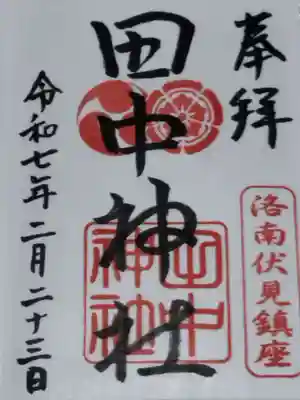 奉拝
洛南伏見鎮座
田中神社
田中神社
令和七年二月二十三日